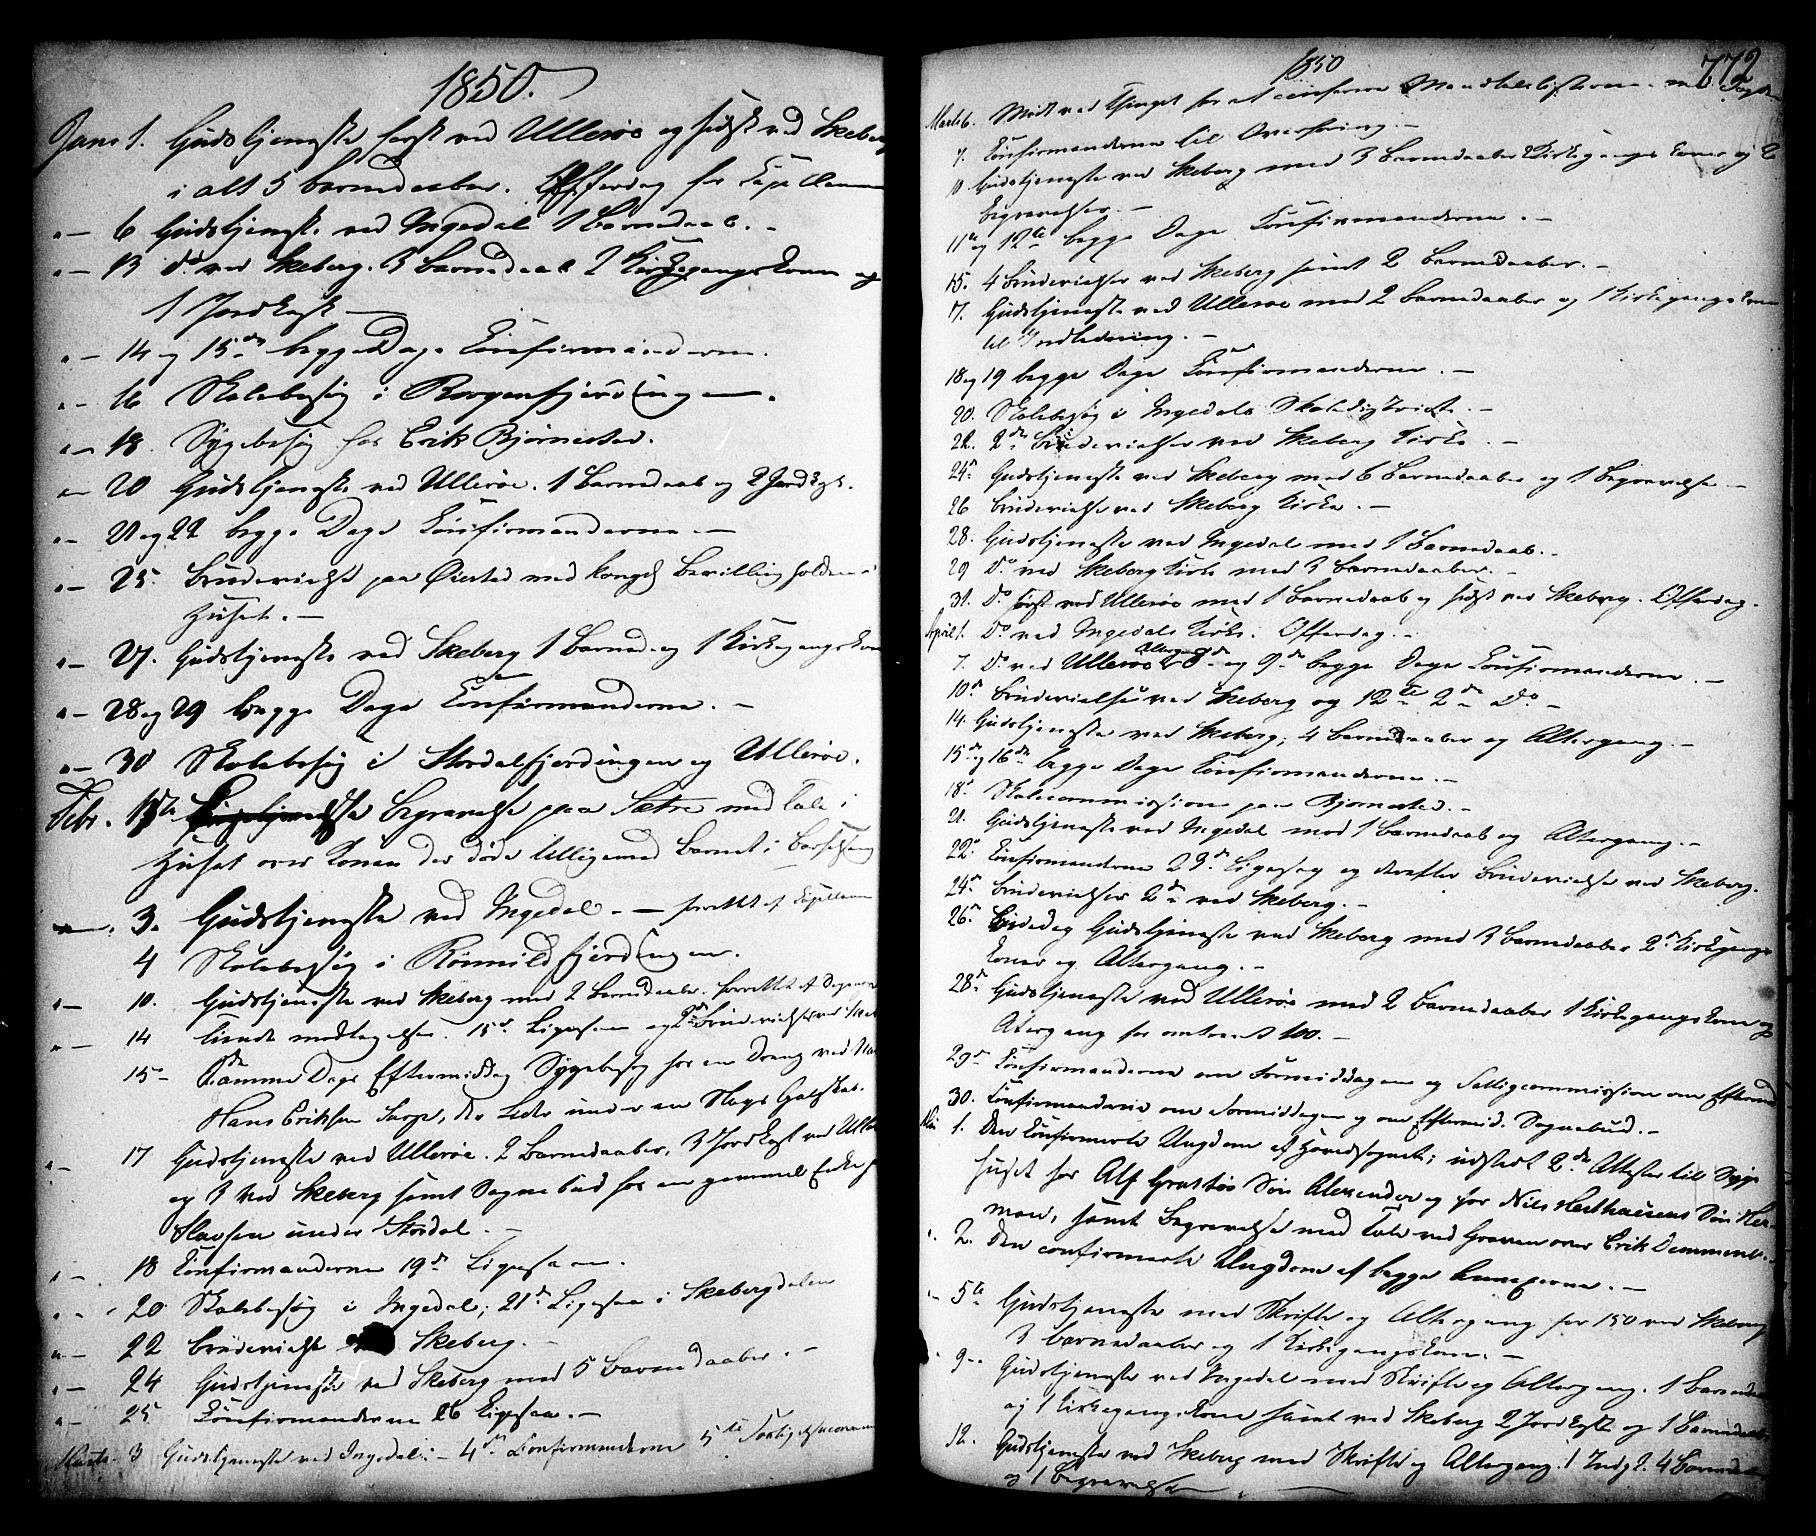 1850.
Janr 1. Gudstjeneste først ved Ullerøe og sidst ved Skeberg
i alt 5 Barnedaaber. Offerdag for Capellanen
" — 6 Gudstjeneste ved Ingedal 1 Barnedaab. —
" — 13 do ved Skeberg. 3 Barnedaab 2 Kirkegangskoner og
1 Jordkast —
" — 14 og 15de begge Dage Confirmanderne.
" — 16 Skolebesøg i Borgenfjerdingen.
" — 18. Sygebesøg hos Erik Bjørnestad.
" — 20 Gudstjeneste ved Ullerøe. 1 Barnedaab og 2 Jordkast.
" — 21 og 22 begge Dage Confirmanderne. —
" — 25. Brudevielse paa Øiestad med kongel Bevilling holden i
Huset. —
" — 27. Gudstjeneste ved Skeberg 1 Barned. og 1 Kirkegangskone
" — 28 og 29 begge Dage Confirmanderne. —
" — 30 Skolebesøg i Stordalfjerdingen og Ullerøe.
Febr. 1ste Begravelse paa Sætre med Tale i
Huset over Konen der døde tilligemed Barnet i Barselseng
3. Gudstjeneste ved Ingedal. — forrettet af Capellanen
4 Skolebesøg i Rømmildfjerdingen.
" — 10. Gudstjeneste ved Skeberg med 2 Barnedaaber. forrettet af
" — 14 Tiende modtagelse. 15de Ligesaa og 2de Brudevielser ved Skeberg
15 — Samme Dags Eftermiddag Sygebesøg hos en Dreng ved
Hans Eriksen der leder under en Slags Galskab.
" — 17 Gudstjeneste ved Ullerøe. 2 Barnedaaber, 3 Jordkast ved Ullerøe
og 3 ved Skeberg samt Sognebud hos en gammel Enke
under Stordal. —
" — 18 Confirmanderne 19de Ligesaa.
" — 20 Skolebesøg i Ingedal; 21de Ligesaa i Skebergdalen
" — 22 Brudevielse Skeberg. —
" — 24 Gudstjeneste ved Skeberg med 5 Barnedaaber. —
" — 25 Confirmanderne 26 Ligesaa. —
Marts. 3 Gudstjeneste ved Ingedal. — 4de Confirmanderne 5te
1850
772
Marts 6. Mødt ved Thinget for at conferere Mandtalslisterne med Fogden
7. Confirmanderne til Overhøring. —
10 Gudstjeneste ved Skeberg med 3 Barnedaaber 2 Kirkegangs Koner og 2
Begravelser. —
11te og 12te begge Dage Confirmanderne. —
15. 4 Brudevielser ved Skeberg samt 2 Barnedaaber. —
17. Gudstjeneste ved Ullerøe med 2 Barnedaaber og 1 Kirkegangskone
til Indledning. —
18 og 19 begge Dage Confirmanderne. —
20. Skolebesøg i Ingedals Skoledistrict. —
22. 2de Brudevielser ved Skeberg Kirke. —
24de Gudstjeneste ved Skeberg med 6 Barnedaaber og 1 Begravelse —
26 Brudevielse ved Skeberg Kirke. —
28. Gudstjeneste ved Ingedal med 1 Barnedaab. —
29 Do ved Skeberg Kirke med 3 Barnedaaber. —
31. Do først ved Ullerøe med 1 Barnedaab og sidst ved Skeberg. Offerdag.
April 1. Do ved Ingedals Kirke. Offerdag. —
7. Do ved Ullerøe Altergang 8de og 9de begge Dage Confirmanderne. —
10de Brudevielse ved Skeberg og 12te 2de Do —
14. Gudstjeneste ved Skeberg; 4 Barnedaaber og Altergang. —
15de og 16de begge Dage Confirmanderne. —
18de Skolecommission paa Bjørnestad. —
21. Gudstjeneste ved Ingedal med 1 Barnedaab og Altergang. —
22de Confirmanderne 23de Ligesaa og derefter Brudevielse ved Skeberg.
24de Brudevielser 2de ved Skeberg. —
26de Bededag Gudstjeneste ved Skeberg med 3 Barnedaaber 2de Kirkegangs
Koner og Altergang. —
28de Gudstjeneste ved Ullerøe med 2 Barnedaaber 1 Kirkegangskone og
Altergang for omtrent 100. —
29de Confirmanderne om Formiddagen og Fattigcommission om Eftermid
30. Confirmanderne om Formiddagen og om Eftermid. Sognebud. —
Mai 1. Den Confirmerte Ungdom af Hovedsognet; udstedt 2de Attester til Syge
huset for Alf Graatøs Søn Alexander og for Nils Herthausens Søn Her-
man, samt Begravelse med Tale ved Graven over Erik
" 2. Den confirmerte Ungdom af begge Annexerne. —
" — 5te Gudstjeneste med Skrifte og Altergang for 150 ved Skeberg
3 Barnedaaber og 1 Kirkegangskone. —
9 — Gudstjeneste ved Ingedal med Skrifte og Altergang. 1 Barnedaab
og 1 Kirkegangskone samt ved Skeberg 2 Jordkast og 1 Barnedaab
12. Gudstjeneste ved Skeberg med Skrifte og Altergang. 4 Barnedaaber
og 1 Begravelse —